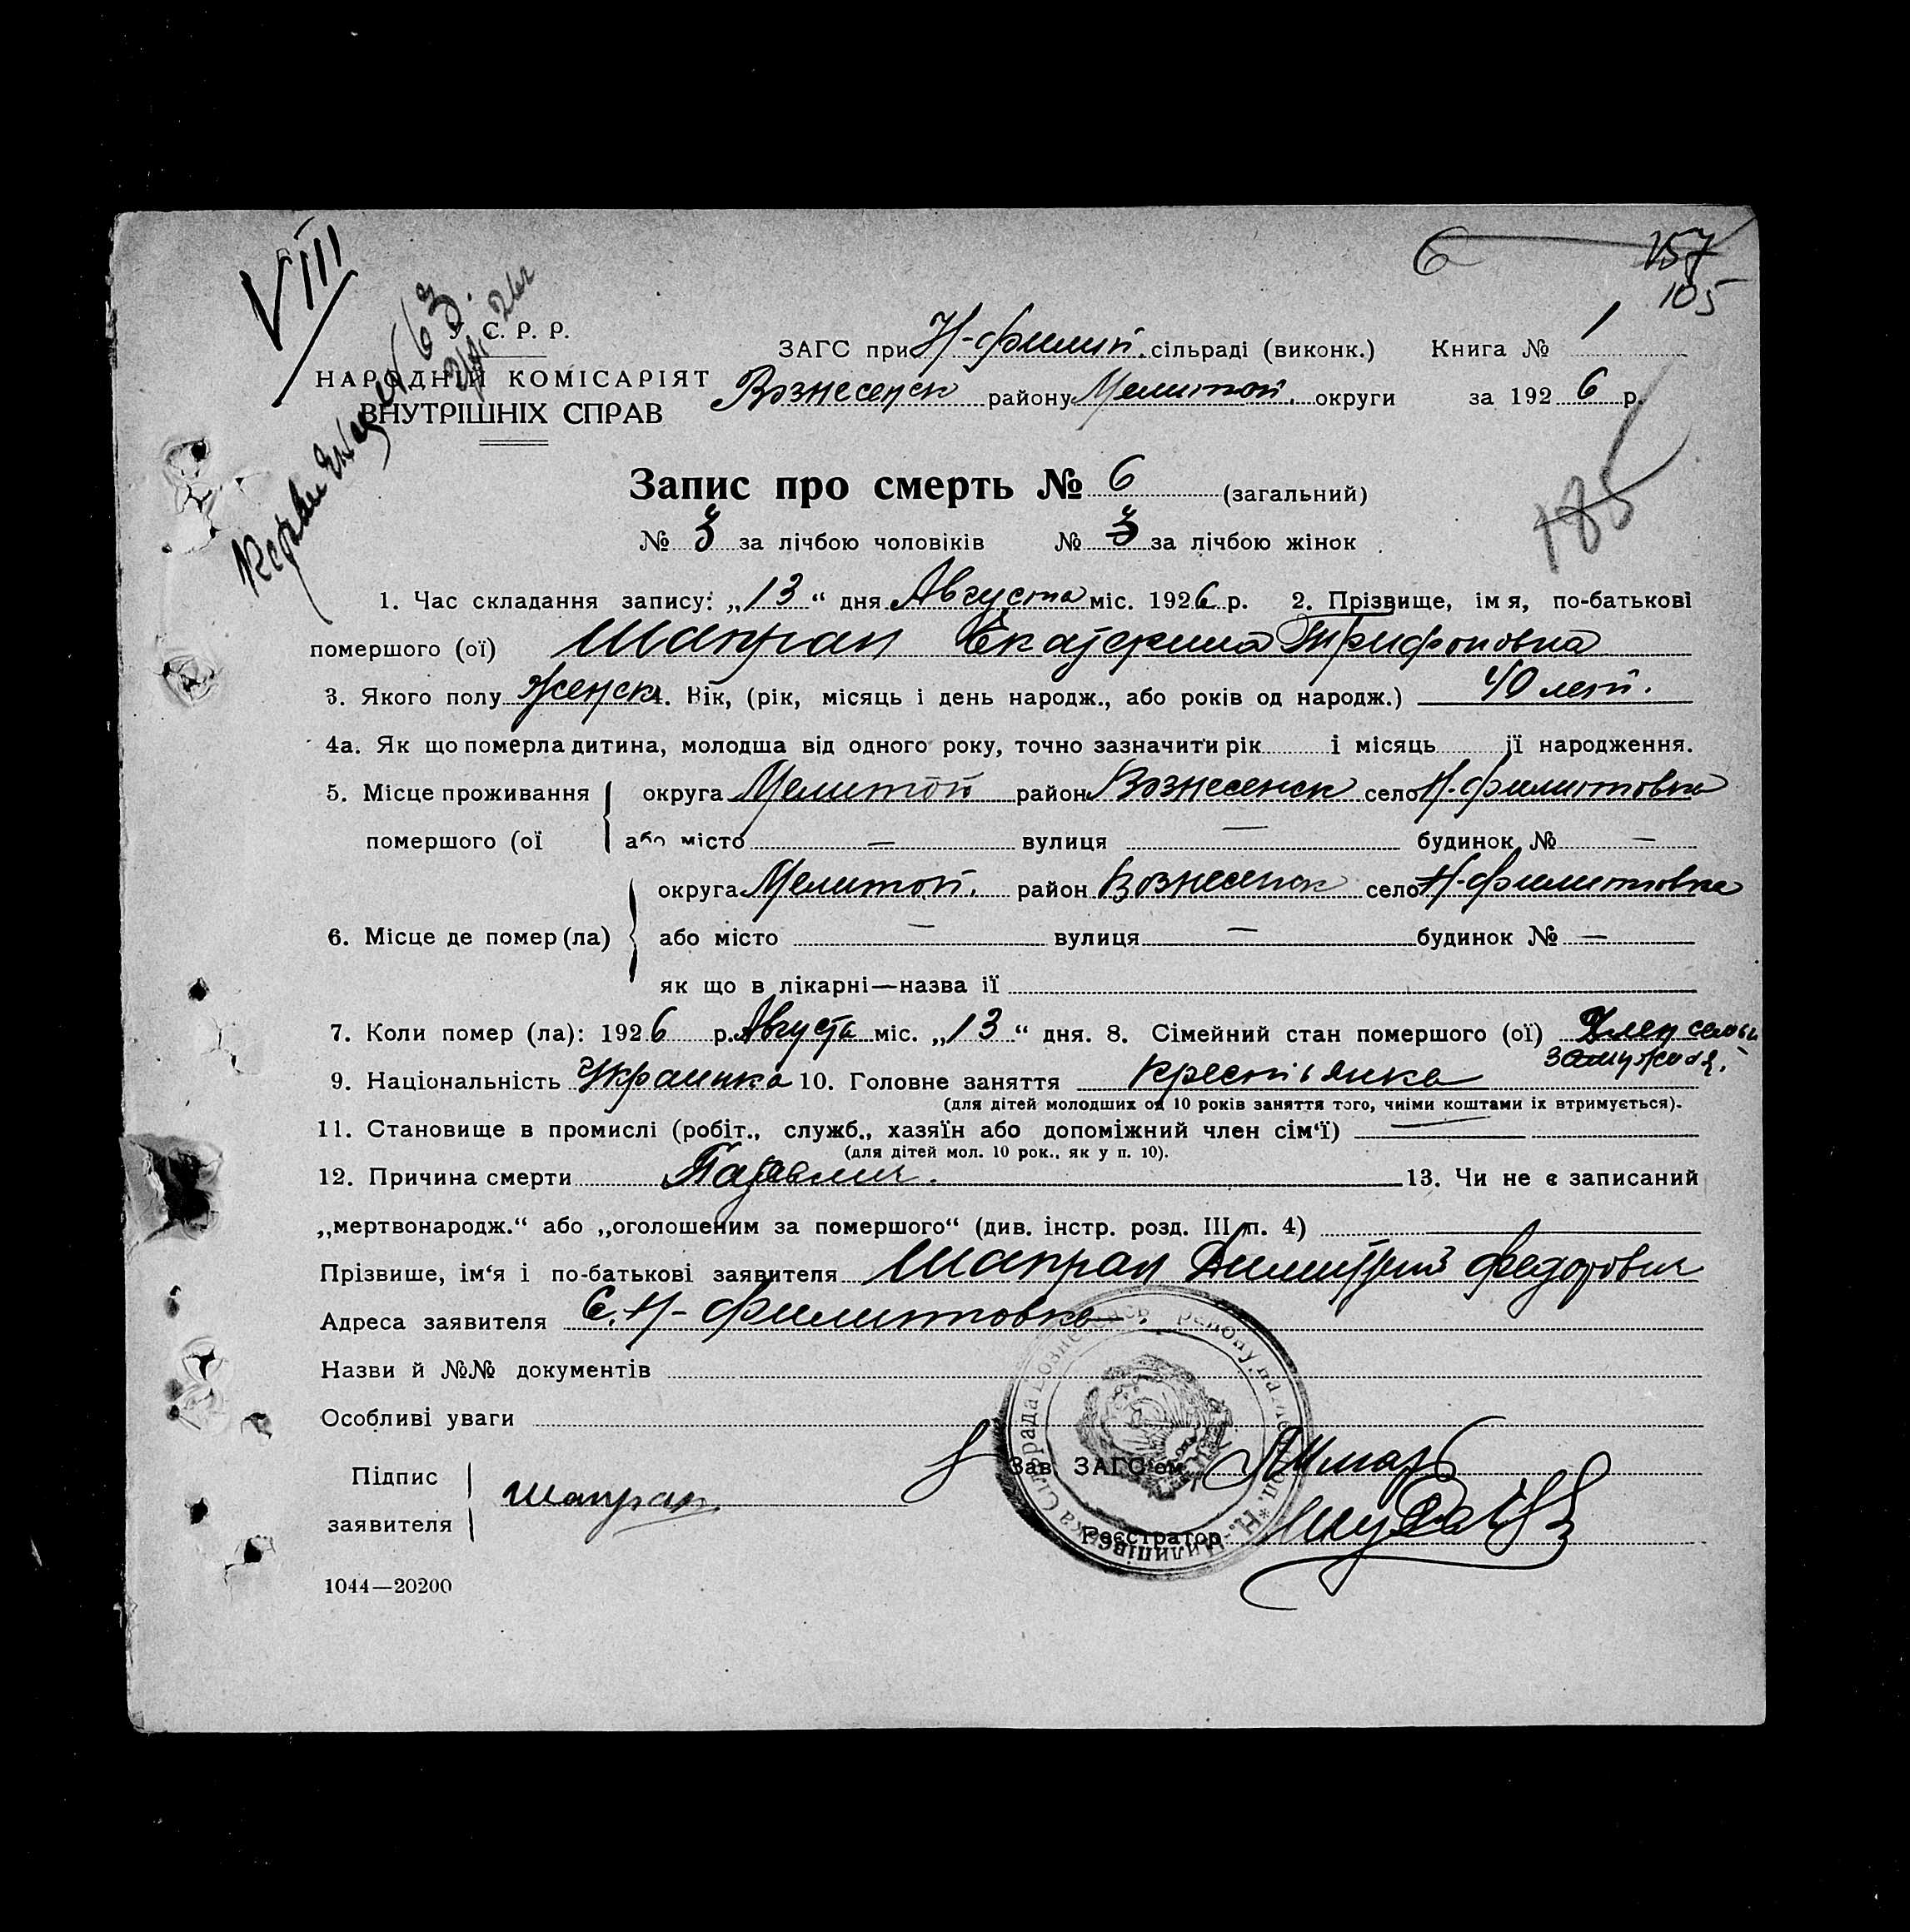 VIII
6 157
105
У. С. Р. Р.
НАРОДНІЙ КОМІСАРІЯТ
ВНУТРІШНІХ СПРАВ
ЗАГС при Н-Филип. сільраді (виконк.) Книга № 1
Вознесенск району Мелитоп. округи за 1926 р.
185
Запис про смерть № 6 (загальний)
№ 3 за лічбою чоловіків № 3 за лічбою жінок
1. Час складання запису: „13“ дня Августа міс. 1926 р. 2. Прізвище, імя, по-батькові
помершого (ої) Шапран Екатерина Трифоновна
3. Якого полу женск 4. Вік, (рік, місяць і день народж., або років од народж.) 40 лет.
4а. Як що померла дитина, молодша від одного року, точно зазначити рік і місяць її народження.
5. Місце проживання округа Мелитоп район Вознесенск село Н-Филиповка
помершого (ої або місто — вулиця — будинок № —
округа Мелитоп. район Вознесенск село Н-Филиповка
6. Місце де помер (ла) або місто — вулиця — будинок № —
як що в лікарні—назва ії
7. Коли помер (ла): 1926 р. Августа міс. „13“ дня. 8. Сімейний стан помершого (ої) Член семьи
замужняя.
9. Національність Украинка 10. Головне заняття крестьянка
(для дітей молодших од 10 років заняття того, чиїми коштами їх втримується).
11. Становище в промислі (робіт., служб., хазяїн або допоміжний член сім‘ї) —
(для дітей мол. 10 рок., як у п. 10).
12. Причина смерти 13. Чи не є записаний
„мертвонародж.“ або „оголошеним за помершого“ (див. інстр. розд. III п. 4)
Прізвише, ім‘я і по-батькові заявителя Шапран Димитрий Федорович
Адреса заявителя С. Н-Филиповка
Назви й №№ документів
Особливі уваги
Підпис
заявителя Шапран
Зав. ЗАГС‘ом
Реєстратор
1044—20200